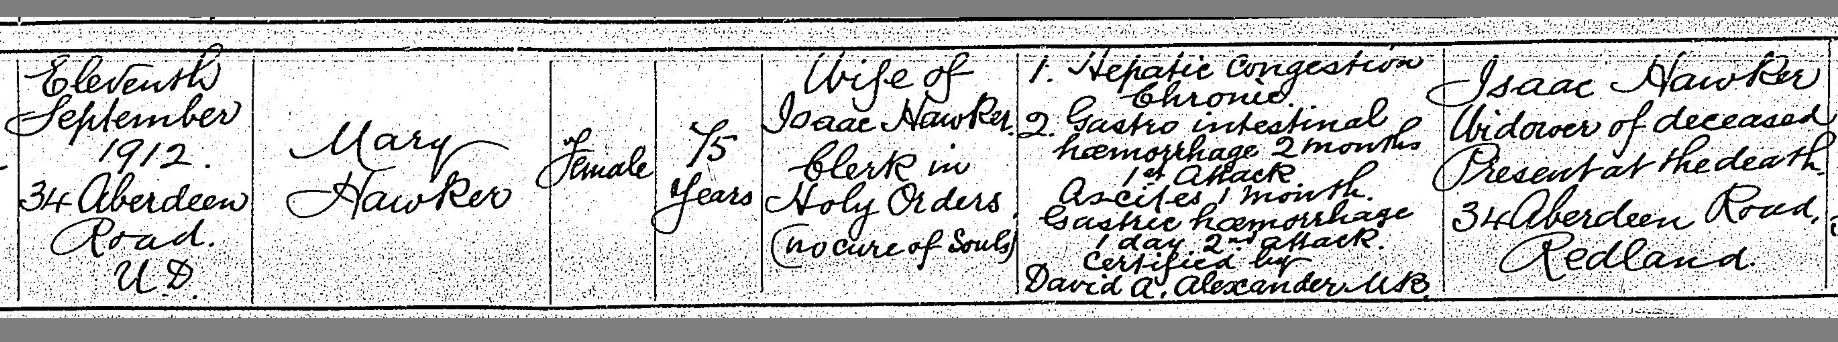 Eleventh
September
1912.
34 Aberdeen
Road.
U.D.
Mary
Hawker
Female
75
Years
Wife of
Isaac Hawker.
Clerk in
Holy Orders.
(no cure of Souls)
1. Hepatic Congestion
Chronic.
2. Gastro intestinal
hæmorrhage 2 months
1st Attack
Ascites 1 month.
Gastric hæmorrhage
1 day 2nd attack.
Certified by
David A. Alexander M.B.
Isaac Hawker
Widower of deceased
Present at the death.
34 Aberdeen Road.
Redland.